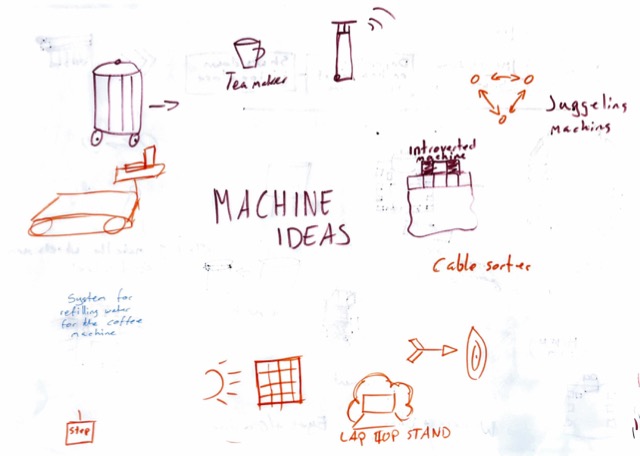 Tea maker
Juggeling
maching
Introverted
machine
MACHINE
IDEAS
Cable sorter
System for
refilling water
for the coffee
machine
Stop
LAP TOP STAND